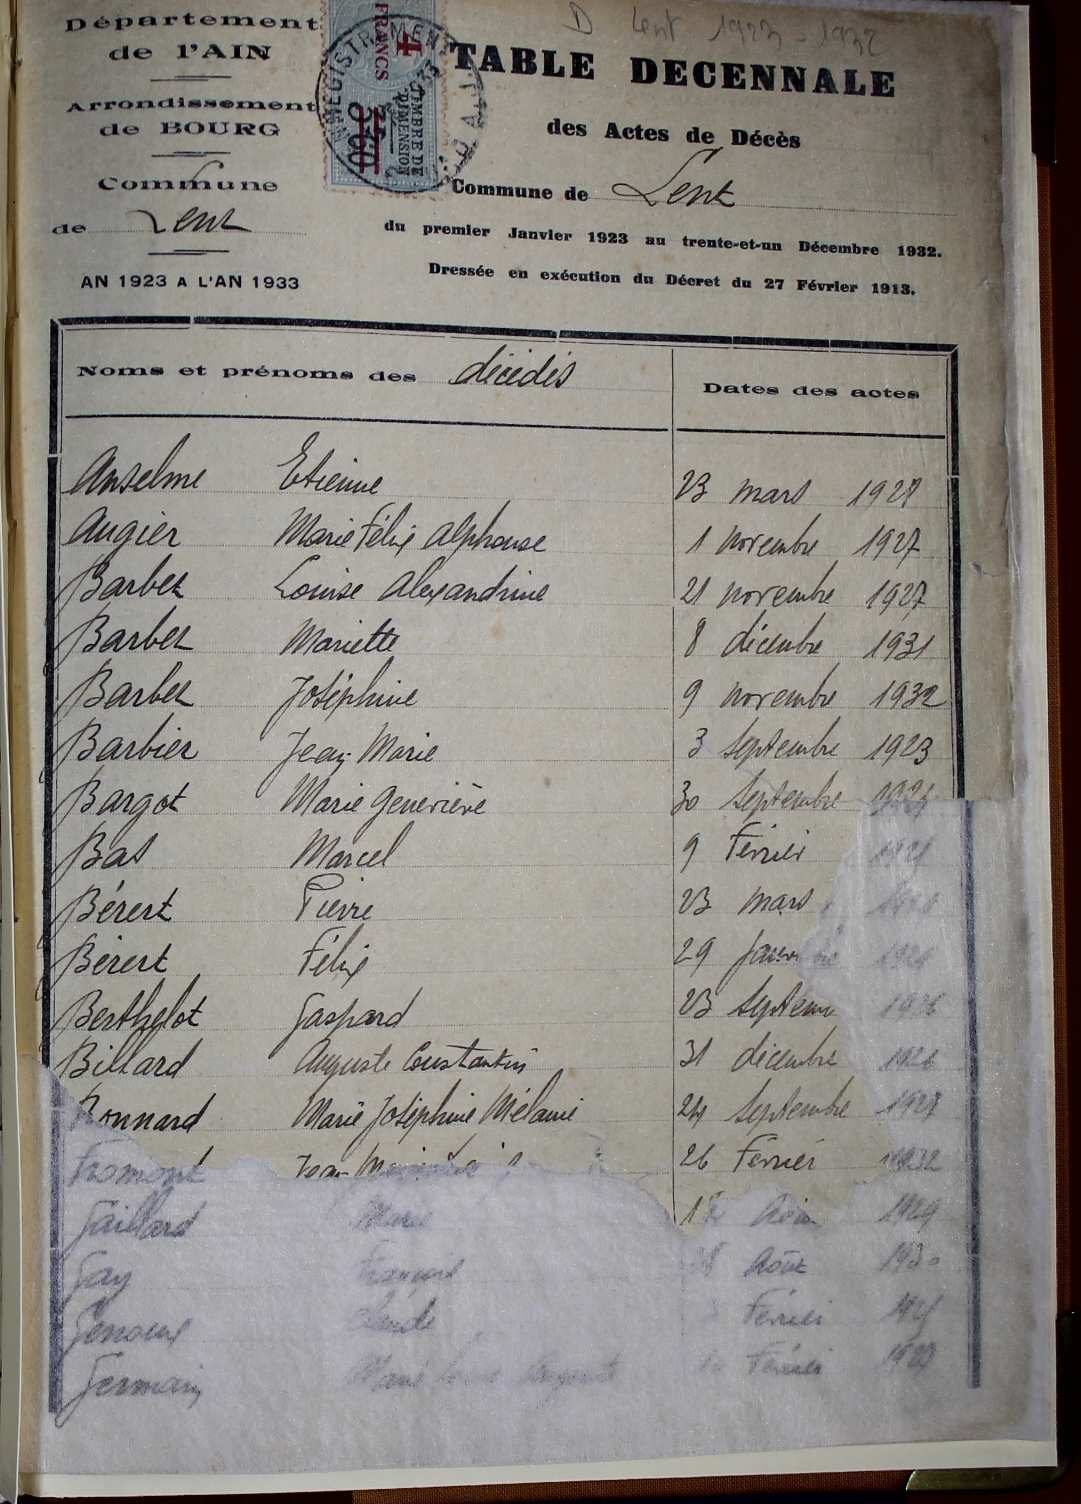 D Lent 1923 - 1932
Département
de l'AIN
Arrondissement
de BOURG
Commune
de Lent
AN 1923 A L'AN 1933
4
FRANCS
TIMBRE DE
DIMENSION
TABLE DECENNALE
des Actes de Décès
Commune de Lent
du premier Janvier 1923 au trente-et-un Décembre 1932.
Dressée en exécution du Décret du 27 Février 1913.
Noms et prénoms des décédés Dates des actes
Anselme Etienne 23 mars 1927
Augier Marie Félix Alphonse 1 novembre 1927
Barbet Louise Alexandrine 21 novembre 1927
Barbet Mariette 8 décembre 1931
Barbet Joséphine 9 novembre 1932
Barbier Jean Marie 3 septembre 1923
Bargot Marie Geneviève 30 septembre
Bas Marcel 9 Février
Bérert Pierre 23 mars
Bérert Félix 29
Berthelot Gaspard 23 septem 1926
Billard Auguste Constantin 31 décembre 1926
Bonnard Marie Joséphine Mélanie 24 septembre 1927
Fromont Jean 26 Février 1932
Gaillard Marie 1929
Gay François Août 1930
Genoux Claude Février
Germain Marie Février 1927